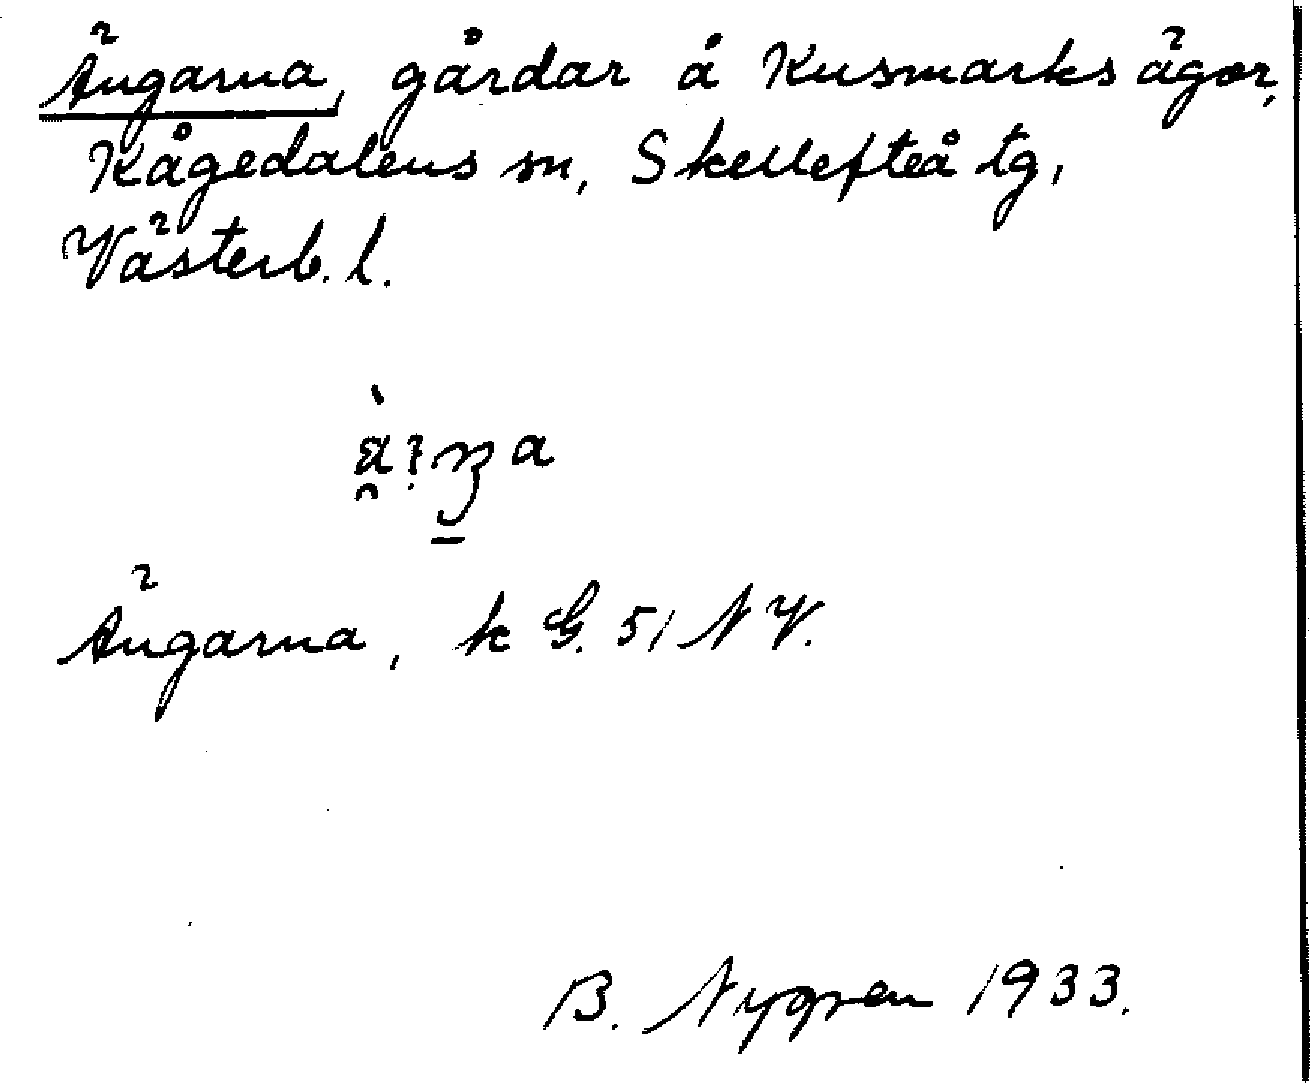 Ängarna, gårdar å Kusmarks ägor,
Kågedalens sn, Skellefteå tg,
Västerb. l.
Ängarna, k G. 51 NV.
B. Nygren 1933.